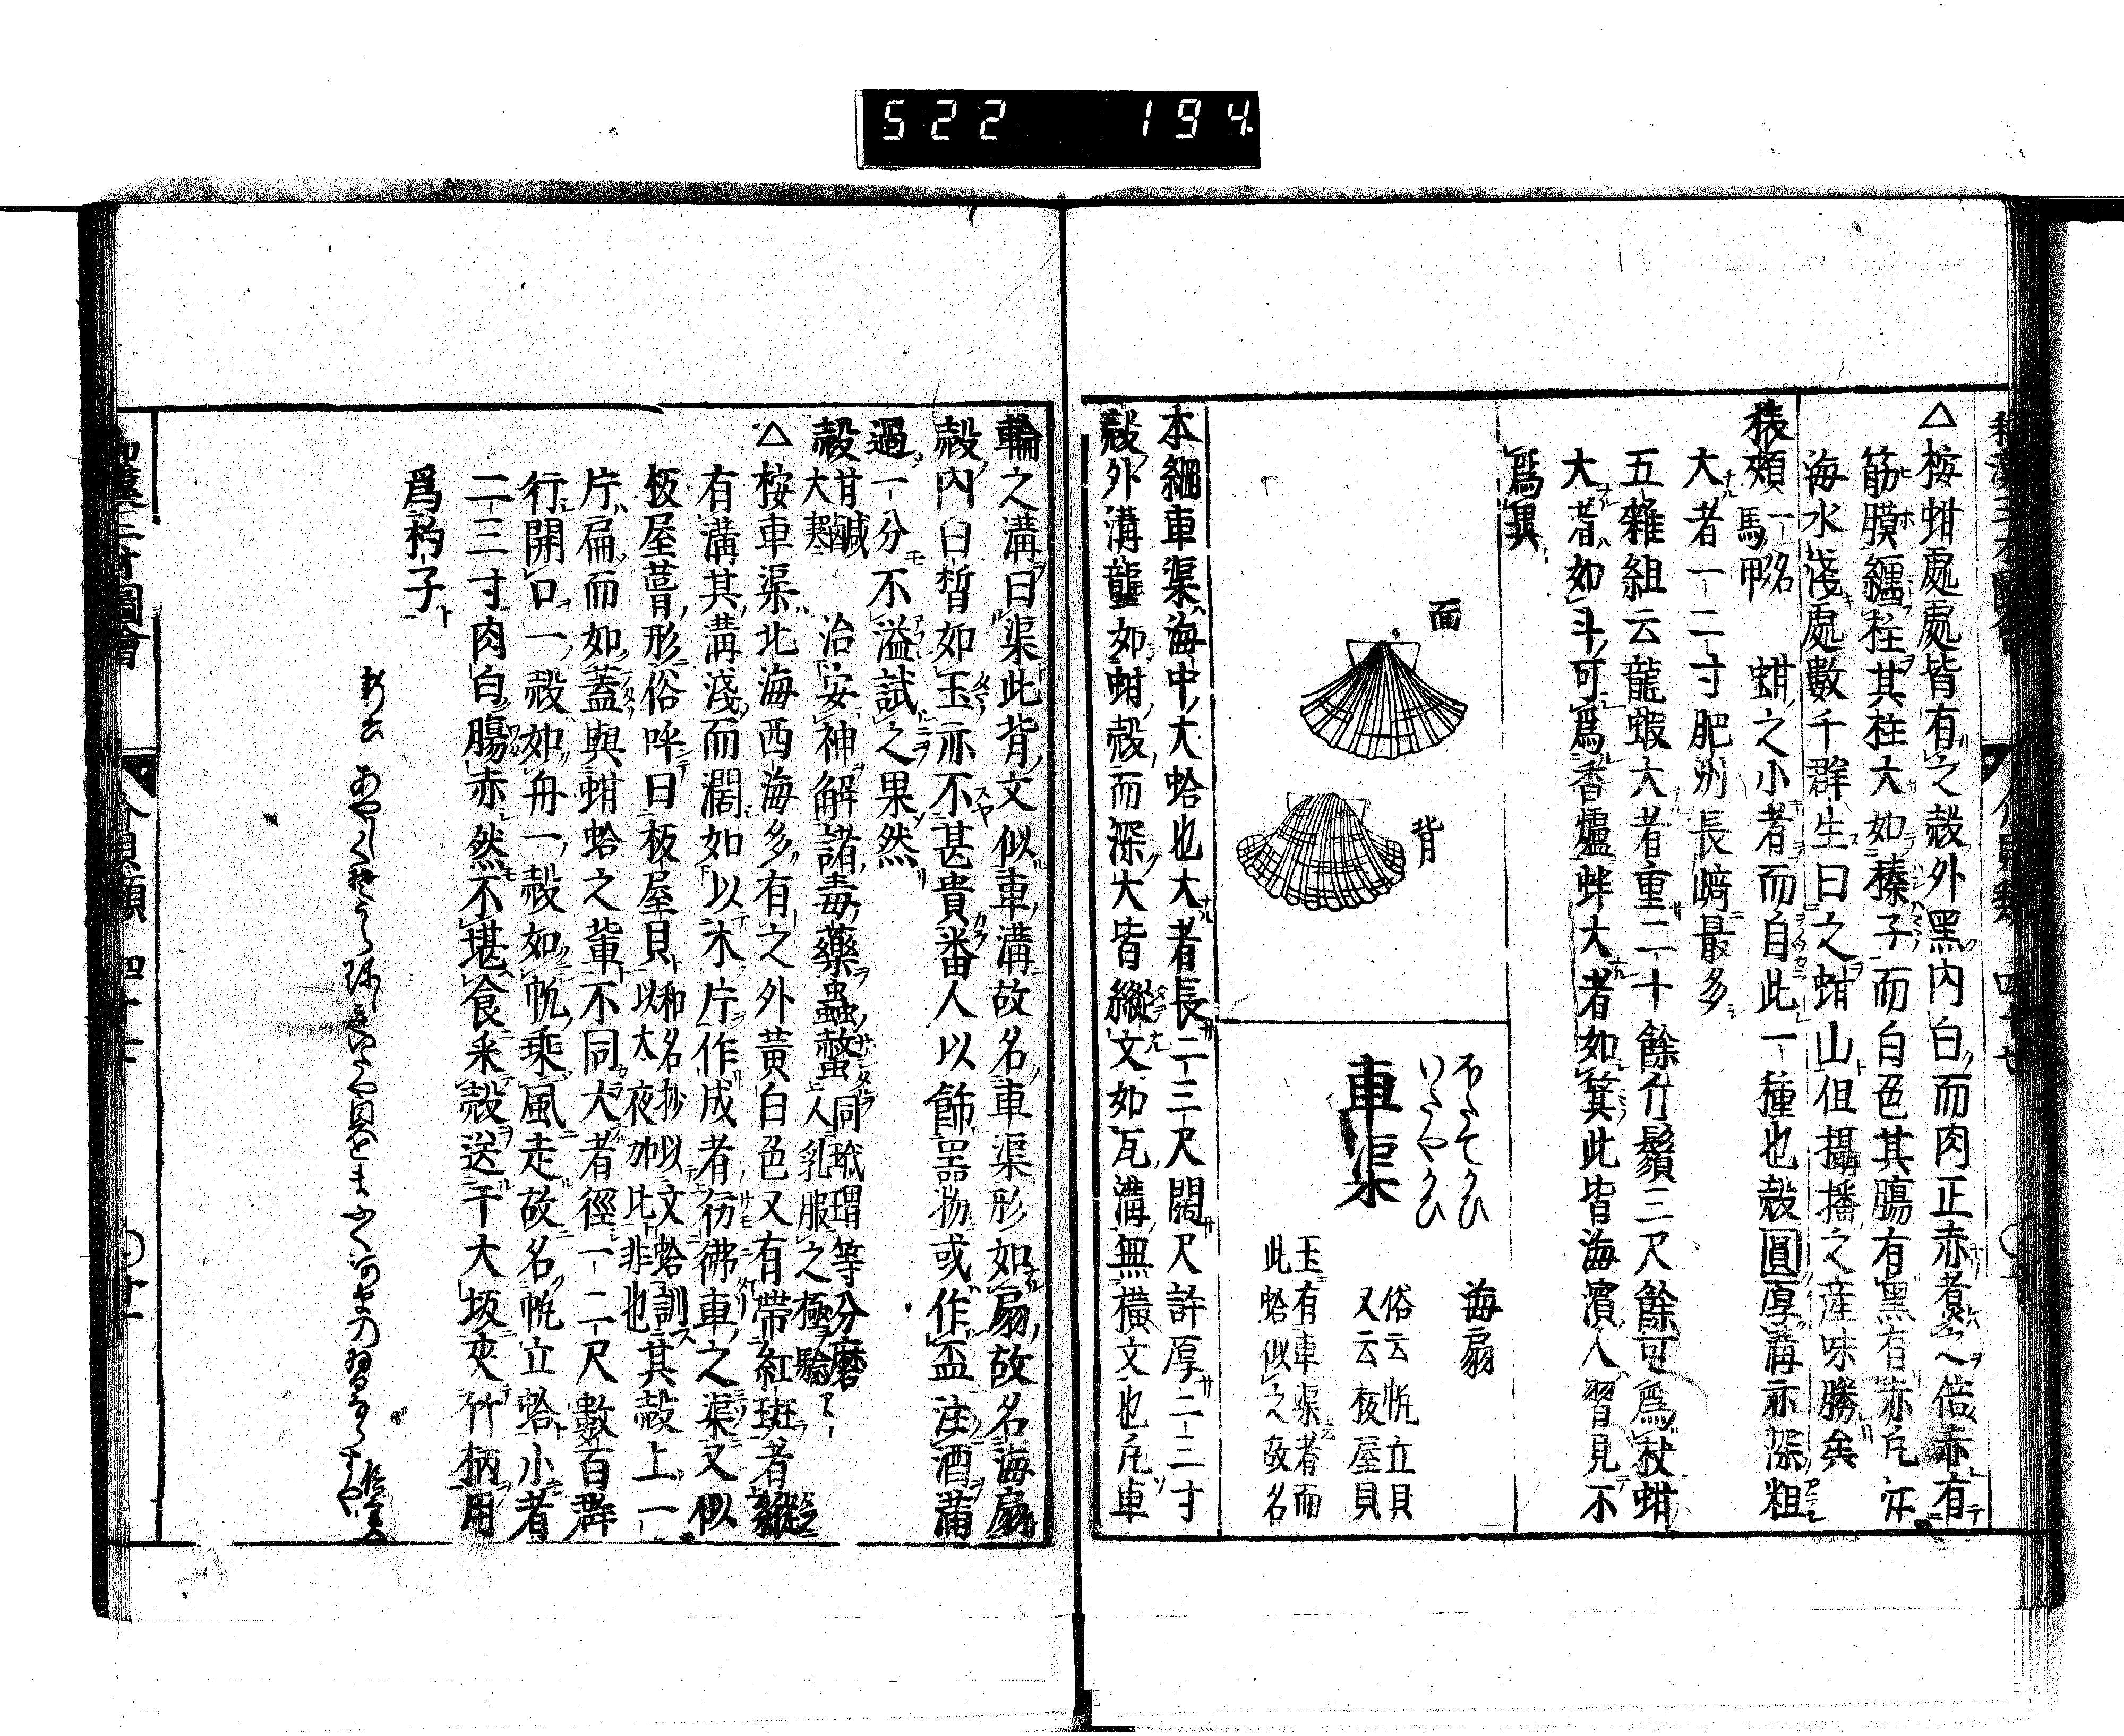 522 194
△桉蚶處處皆有之殻外黑内白而肉正赤者煑之倍赤有
筋膜纏柱其柱大如榛子而白色其膓有黑有赤凡於
海水淺處數千群生曰之蚶山但攝播之産味勝矣
猿頰 一名馬甲 蚶之小者而自此一種也殻圓厚溝亦深粗
大者一二寸肥州長﨑最多
五雜組云龍蝦大者重二十餘斤鬚三尺餘可爲杖蚶
大者如斗可爲香爐蚌大者如箕此皆海濱人習見不
爲異
面
背
車渠
ほたてかひ
いたやかひ
海扇
俗云帆立貝
又云板屋貝
玉有車渠者而
此蛤似之故名
本綱車渠海中大蛤也大者長二三尺闊尺許厚二三寸
殻外溝壟如蚶殻而深大皆縱文如瓦溝無横文也凡車
輪之溝曰渠此背文似車溝故名車渠形如扇故名海扇
殻内白皙如玉亦不甚貴番人以飾噐物或作盃注酒滿
過一分不溢試之果然
殻 甘鹹大寒 治安神解諸毒藥蟲螫 同玳瑁等分磨人乳服之極驗
△桉車渠北海西海多有之外黄白色又有帶紅斑者縱
有溝其溝淺而濶如以木片作成者彷彿車之渠又似
板屋葺形俗呼曰板屋貝 和名抄以文蛤訓以大夜加比非也 其殻上一
片扁而如蓋與蚶蛤之軰不同大者徑一二尺數百群
行開口一殻如舟一殻如帆乘風走故名帆立蛤小者
二三寸肉白膓赤然不堪食釆殻送干大坂夾竹柄用
爲杓子
和漢三才圖會 介貝類 四十七